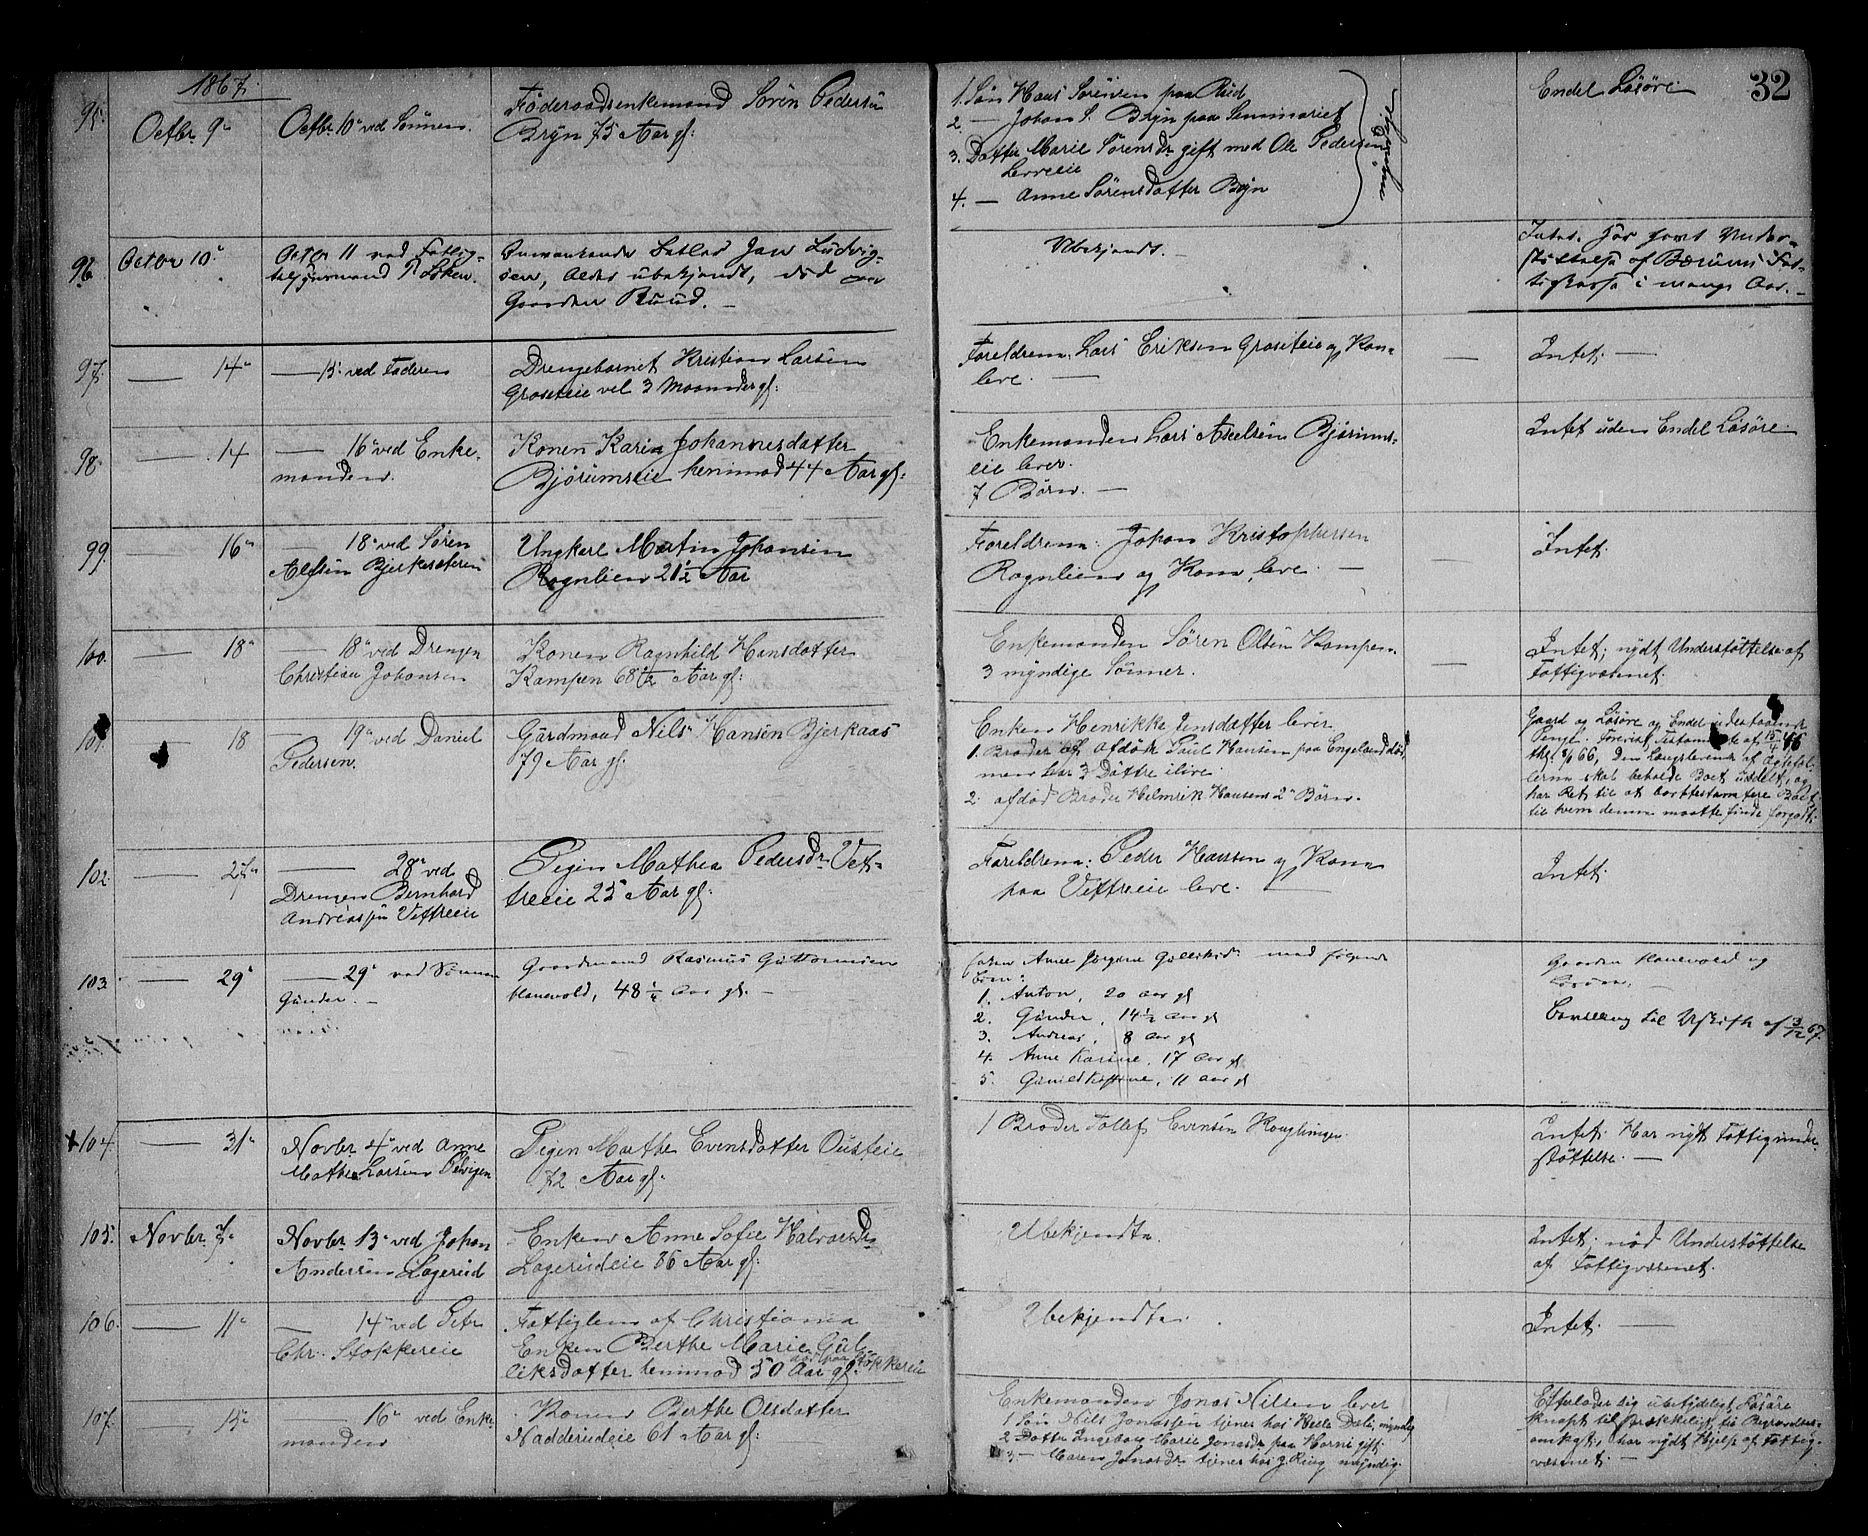 1867.
32
95.
Octbr. 9"
Octbr 10" ved Sönnen.
Föderaadsenkemand Sören Pedersen
Bryn 75 Aar gl:
1. Sön Hans Sörensen paa Rud
2. — Johan S. Bryn paa Seminariet
3. Datter Marie Sörensdr gift med Ole Pedersen
4. — Anne Sörensdatter Bryn
myndige
Endel Lösöre
96
Octbr 10"
Octbr 11 ved Fattig-
Löken.
Ludvig-
sen, Alder ubekjendt, död paa
Gaarden Ruud. —
Ubekjendt. —
Intet. Har faaet Under-
støttelse af Bærums Fat-
tigkasse i mange Aar. —
97.
— 14"
— 15" ved Faderen
Drengebarnet Kristian Larsen
Graseteie vel 3 Maaneder gl:
Foreldrene: Lars Eriksen Graseteie og Kone
leve. —
—
Intet. —
98.
— 14
— 16" ved Enke-
manden.
Konen Karen Johannesdatter
Bjørumseie henimod 44 Aar gl:
Enkemanden Lars Axelsen Bjørums-
eie lever.
7 Börn. —
Intet uden Endel Lösöre.
99.
— 16"
— 18" ved Sören
Alfsen Bjerkesæteren
Ungkarl Martin Johansen
Rognlien 21½ Aar
Foreldrene: Johan Kristophersen
Rognlien og Kone, leve. —
Intet.
100.
— 18"
— 18" ved Drengen
Christian Johansen
Konen Ragnhild Hansdatter
Kampen 68½ Aar gl:
Enkemanden Sören Olsen Kampen
3 myndige Sönner.
—
Intet; nydt Understöttelse af
Fattigvæsenet.
101.
— 18
— 19" ved Daniel
Pedersen.
Gårdmand Nils Hansen Bjerkaas
79 Aar gl:
Enken Henrikke Jensdatter lever
1. Broder af afdöde Poul Hansen paa Engeland död,
man har 3 Döttre ilive
2. afdöd Broder Helmrik Hansens 2" Börn.
Gaard og Lösöre og Endel udestaaende
Penge. Forevist Testamente af
66, Den Længstlevende af Ægtefol-
kene skal beholde Boet udelt, og
har Ret til at borttestamentere Boet
til hvem denne maatte finde forgodt.
102.
— 27"
— 28" ved
Drengen Bernhard
Andreassen Vettreeie
Pigen Mathea Pedersdr. Vet-
treeie 25 Aar gl:
Foreldrene: Peder Hansen og Kone
paa Vettreeie leve. —
Intet.
103.
— 29"
— 29" ved Sönnen
Gunder. —
Gaardmand Rasmus Guttormsen
Hanevold, 48¼ Aar gl. —
Enken Anne Jörgine Gulliksd. med fölgende
Börn:
1. Anton, 20 Aar gl
2. Gunder, 14½ Aar gl
3. Andreas, 8 Aar gl
4. Anne Karine, 17 Aar gl
5. 11 Aar gl
Gaarden Hanevold og
Lösöre.
Bevilling til Uskifte af 3/12 67.
+104.
— 31"
Novbr 4" ved Anne
Mathea Larsen
Pigen Marthe Evensdatter Ousteie
72 Aar gl:
1 Broder Tollef Evensen Kauglingen.
Intet. Har nydt Fattigunder-
støttelse. —
105.
Novbr. 7"
Novbr. 13" ved Johan
Andersen Lagerud
Enken Anne Sofie Halvorsdr.
Lagerudeie 86 Aar gl:
Ubekjendte.
Intet. nöd Understöttelse
af Fattigvæsenet.
106.
— 11"
— 14" ved Petr.
Chr. Stokkereie
Fattiglem af Christiania
Enken Berthe Marie Gul-
liksdatter henimod 50 Aar gl: död paa Stokkereie
Ubekjendte.
Intet. —
107.
— 15"
— 16" ved Enke-
manden
Konen Berthe Olsdatter
Nadderudeie 61 Aar gl:
Enkemanden Jonas Nilsen lever
1 Sön Nils Jonassen tjener hos Helle Dali, myndig
2 Datter Ingeborg Marie Jonasdr. paa Horni gift.
3 — Maren Jonasdr tjener hos J. Ring myndig.
Efterlader sig ubetydeligt Lösöre
knapt tilstrækkeligt til Begravelses-
omkost., har nydt Hjelp af Fattig-
væsenet. —